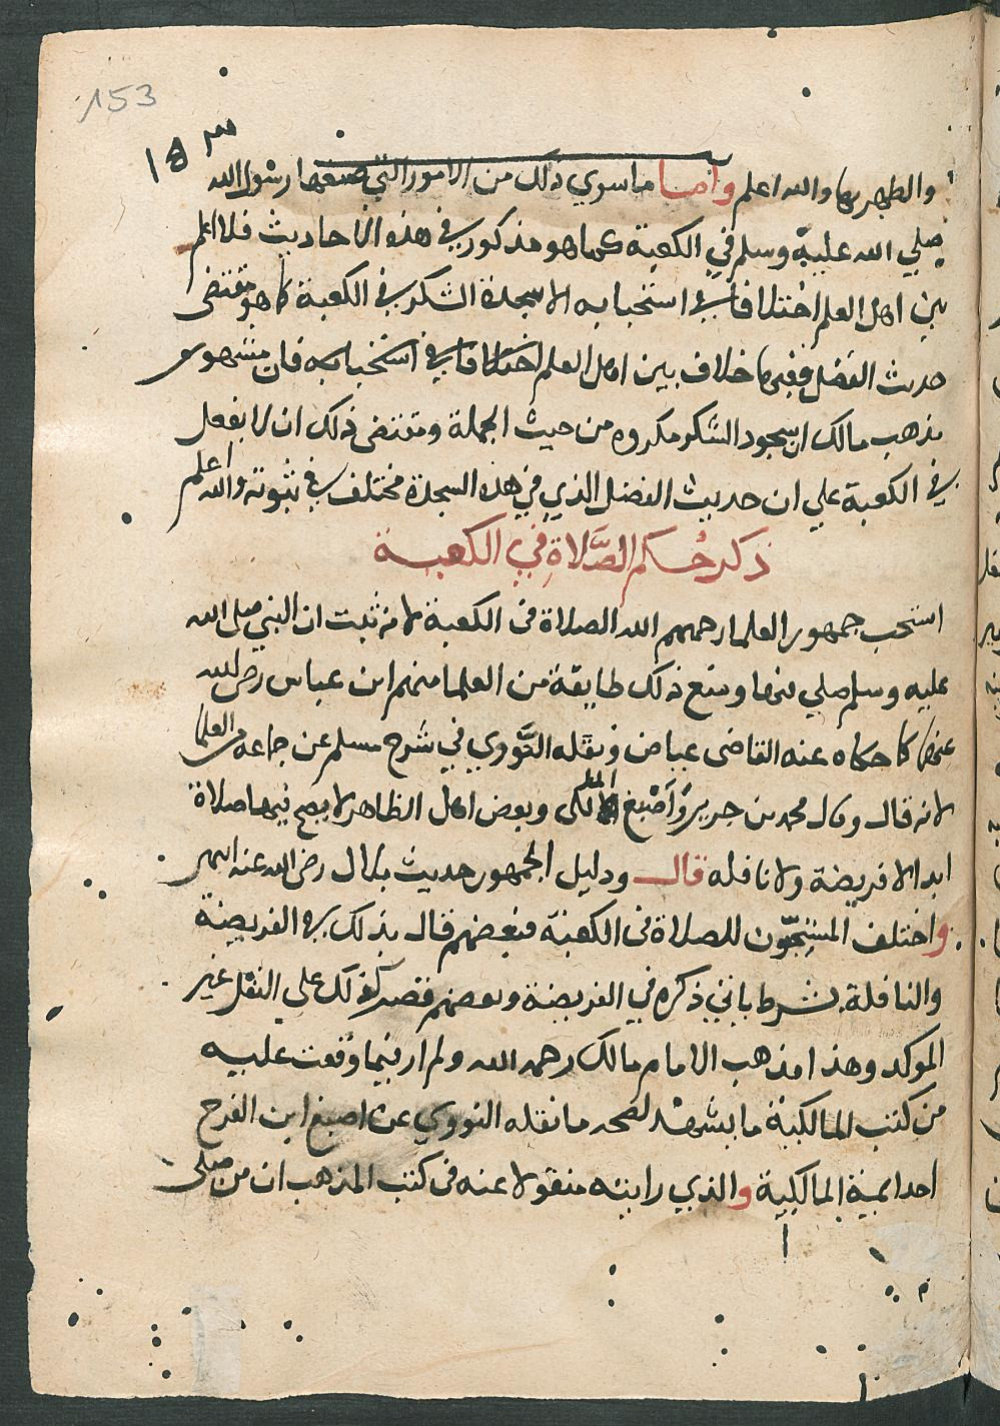 153
١٥٣
والظهر بها والله اعلم وأما ما سوي ذلك من الامور التي صنعها رسول الله
صلي الله عليه وسلم في الكعبة كما هو مذكور في هذه الاحاديث فلا اعلم
بين اهل العلم اختلافا في استحبابه الا سجدة الشكر في الكعبة كما هو مقتضى
حديث الفضل ففيها خلاف بين اهل العلم اختلافا في استحبابه فان مشهور
مذهب مالك ان سجود الشكر مكروه من حيث الجملة ومقتضى ذلك ان لا يفعل
في الكعبة علي ان حديث الفضل الذي في هذه السجدة مختلف في ثبوته والله اعلم
ذكر حُكم الصَّلاةِ في الكعبة
استحب جمهور العلما رحمهم الله الصلاة في الكعبة لانه ثبت ان النبي صلى الله
عليه وسلم صلي فيها ومنع ذلك طايفة من العلما منهم ابن عباس رضي الله
عنهما كما حكاه عنه القاضى عياض ونقله النَّووي في شرح مسلم عن جماعة من العلما
لانه قال وقال محمد بن جرير وأصْبغ المالكى وبعض اهل الظاهر لا يصح فيها صلاة
ابدا لا فريضة ولا نافله قال ودليل الجمهور حديث بلال رضى الله عنه انتهى
واختلف المستحِبّون للصلاة في الكعبة فبعضهم قال بذلك في الفريضة
والنافلة بشرط ياتي ذكره في الفريضة وبعضهم قصر ذلك على النفل غير
الموكد وهذا مذهب الامام مالك رحمه الله ولم ار فيما وقفت عليه
من كتب المالكية ما يشهد لصحة ما نقله النووي عن اصبغ ابن الفرج
احد ايمة المالكية والذي رايته منقولا عنه في كتب المذهب ان من صلى